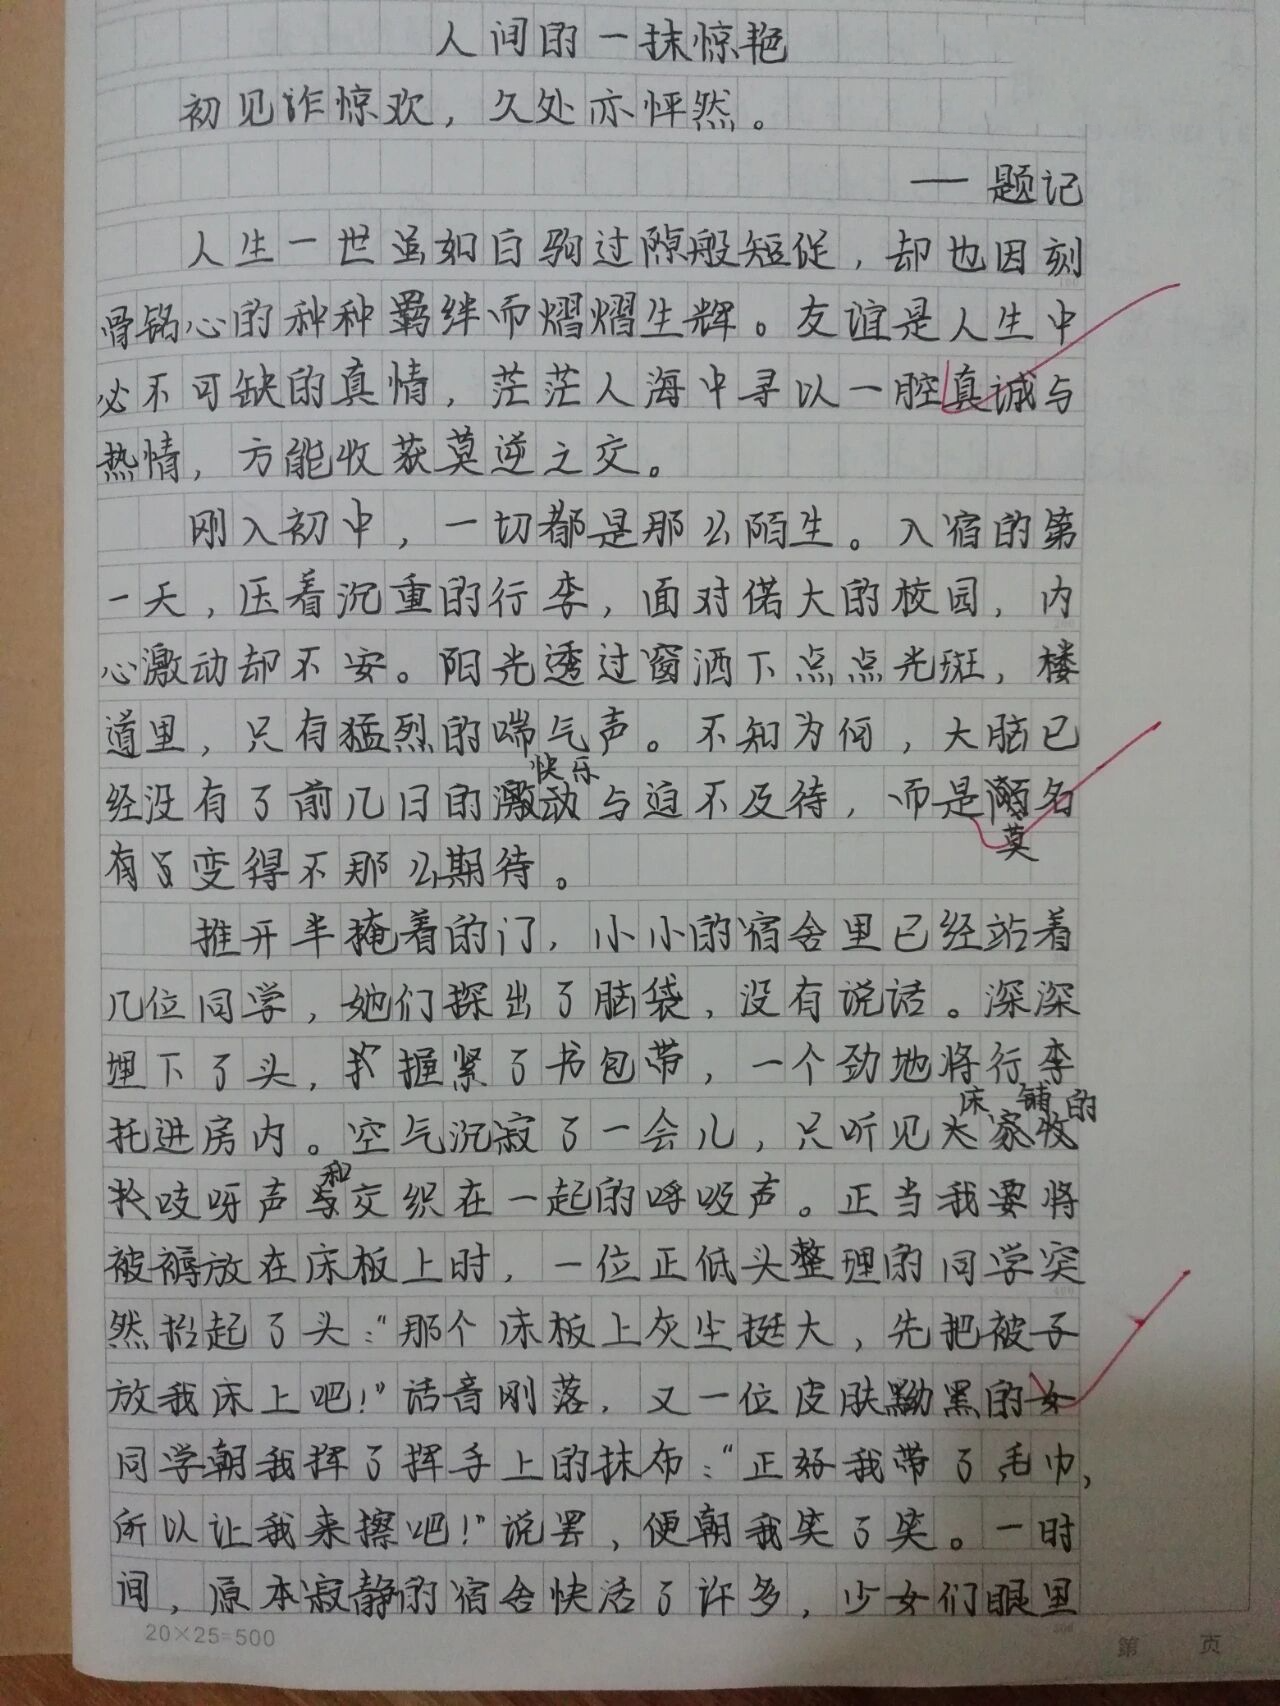 人间的一抹惊艳
初见诈惊欢，久处亦怦然。
——题记
人生一世虽如白驹过隙般短促，却也因刻
骨铭心的种种羁绊而熠熠生辉。友谊是人生中
必不可缺的真情，茫茫人海中寻以一腔真诚与
热情，方能收获莫逆之交。
刚入初中，一切都是那么陌生。入宿的第
一天，压着沉重的行李，面对偌大的校园，内
心激动却不安。阳光透过窗洒下点点光斑，楼
道里，只有猛烈的喘气声。不知为何，大脑已
快乐
经没有了前几日的激动与迫不及待，而是名
莫
有变得不那么期待。
推开半掩着的门，小小的宿舍里已经站着
几位同学，她们探出了脑袋，没有说话。深深
埋下了头，我握紧了书包带，一个劲地将行李
床铺的
托进房内。空气沉寂了一会儿，只听见大家收
和
吱呀声与交织在一起的呼吸声。正当我要将
被褥放在床板上时，一位正低头整理的同学突
然抬起了头：“那个床板上灰尘挺大，先把被子
放我床上吧！”话音刚落，又一位皮肤黝黑的女
同学朝我挥了挥手上的抹布：“正好我带了毛巾，
所以让我来擦吧！”说罢，便朝我笑了笑。一时
间，原本寂静的宿舍快活了许多，少女们眼里
20×25=500
第 页